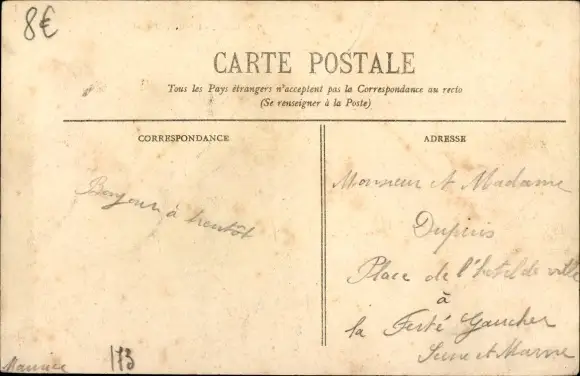 8€
CARTE POSTALE
Tous les Pays étrangers n'acceptent pas la Correspondance au recto
(Se renseigner à la Poste)
CORRESPONDANCE
ADRESSE
Bonjour à bientôt
Monsieur et Madame
Place de l'hotel de ville
à
la Ferté Gaucher
Seine et Marne
Maurice
113